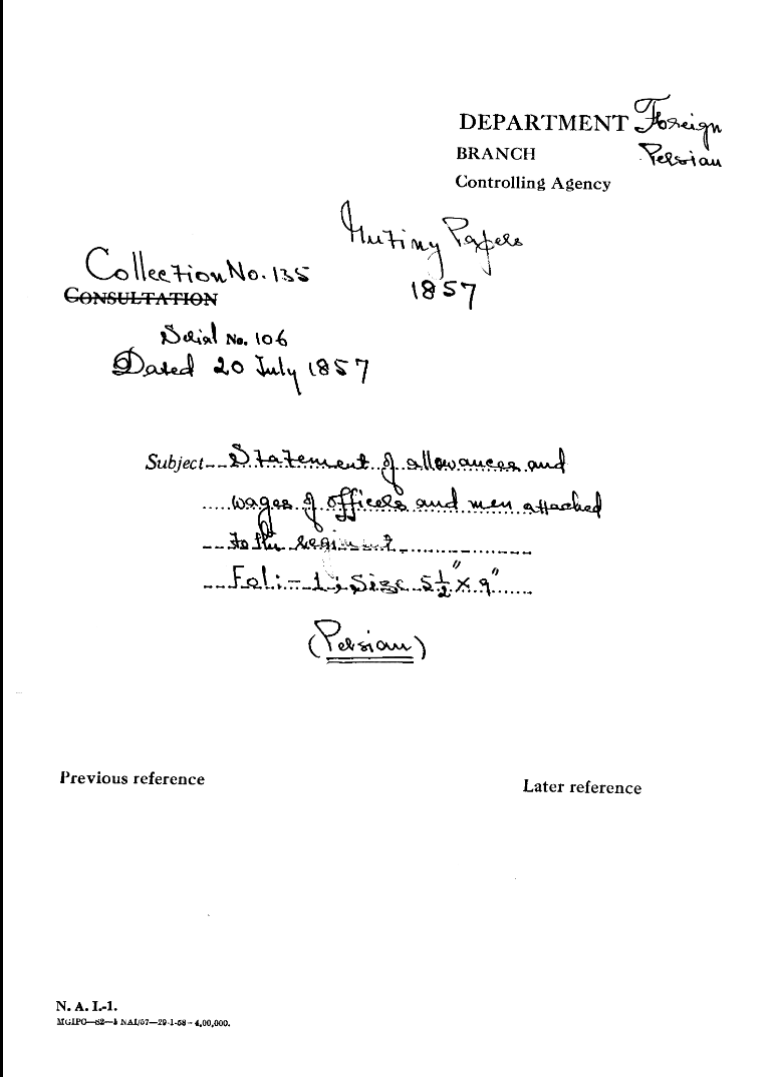 DEPARTMENT Foreign
BRANCH Persian
Controlling Agency
Mutiny Papers
1857
Collection No. 135
CONSULTATION
Serial No. 106
Dated 20 July 1857
Subject Statement of allowances and
wages of officers and men attached
to the regiment
Fol:- 1; Size 5½" x 9"
(Persian)
Previous reference
Later reference
N. A. I.-1.
MGIPC—S2—1 NAI/57—29-1-58—4,00,000.